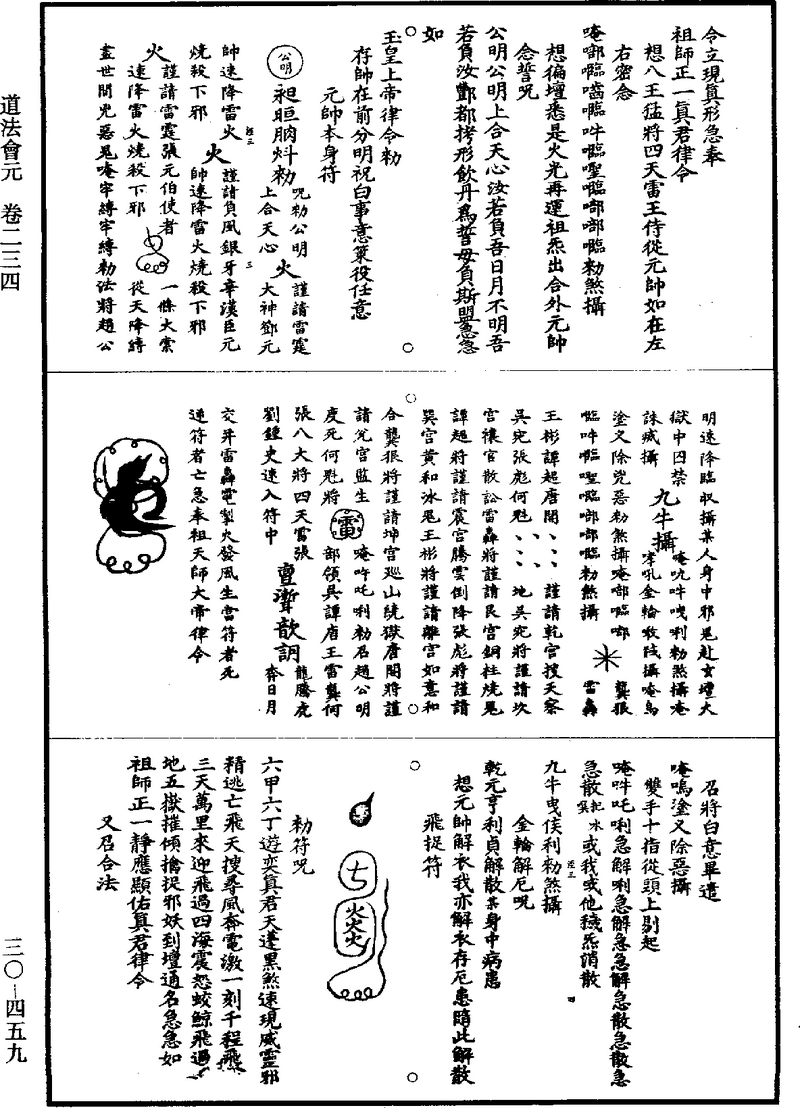 道法會元　卷二三四
三〇—四五九
令立現真形急奉
祖師正一真君律令
想八王猛將四天雷王侍從元帥如在左
右密念
唵啷𤷏
想徧壇悉是火光再運祖炁出合外元帥
念誓呪
公明公明上合天心汝若負吾日月不明吾
若負汝酆都拷形飲丹為誓毋負斯盟急急
如
玉皇上帝律令勑
存帥在前分明祝白事意策役任意
元帥本身符
公明
呪勑公明
上合天心
火
謹請雷霆
大神鄧元
帥速降雷火
燒殺下邪
火
謹請負風銀牙辛漢臣元
帥速降雷火燒殺下邪
火
謹請雷霆張元伯使者
速降雷火燒殺下邪
一條大索
從天降縛
盡世間兇惡鬼唵牢縛牢縛勑法將趙公
明速降臨收攝某人身中邪鬼赴玄壇大
獄中囚禁
誅滅攝
九牛攝
塗叉除兇惡勑煞攝
龔狠
雷轟
王彬譚超唐閣
謹請乾宮搜天察
地吳宛將謹請坎
宮禳官散訟雷轟將謹請艮宮銅柱燒鬼
譚超將謹請震宮騰雲倒降張彪將謹請
巽宮黃和冰鬼王彬將謹請離宮如意和
合龔狠將謹請坤宮廵山統獄唐閣將謹
請兌宮監生
度死何魁將
雷
勑召趙公明
部領吳譚唐王雷龔何
張八大將四天雷張
劉鍾史速入符中
龍騰虎
奔日月
交并雷轟電掣火發風生當符者死
逆符者亡急奉祖天師大帝律令
召將白意畢遣
唵嗚塗叉除惡攝
雙手十指從頭上剔起
唵吽吒唎急解唎急解急急解急散急散急
急散
或我或他穢炁消散
九牛曳俟利勑煞攝
金輪解厄呪
乾元亨利貞解散某身中病患
想元帥解衣我亦解衣存厄患隨此解散
飛捉符
七
火火火
勑符呪
六甲六丁遊奕真君天蓬黑煞速現威靈邪
精逃亡飛天搜尋風奔電激一刻千程飛
三天萬里來迎飛過四海震怒蛟鯨飛過
地五嶽摧傾擒捉邪妖到壇通名急急如
祖師正一靜應顯佑真君律令
又召合法